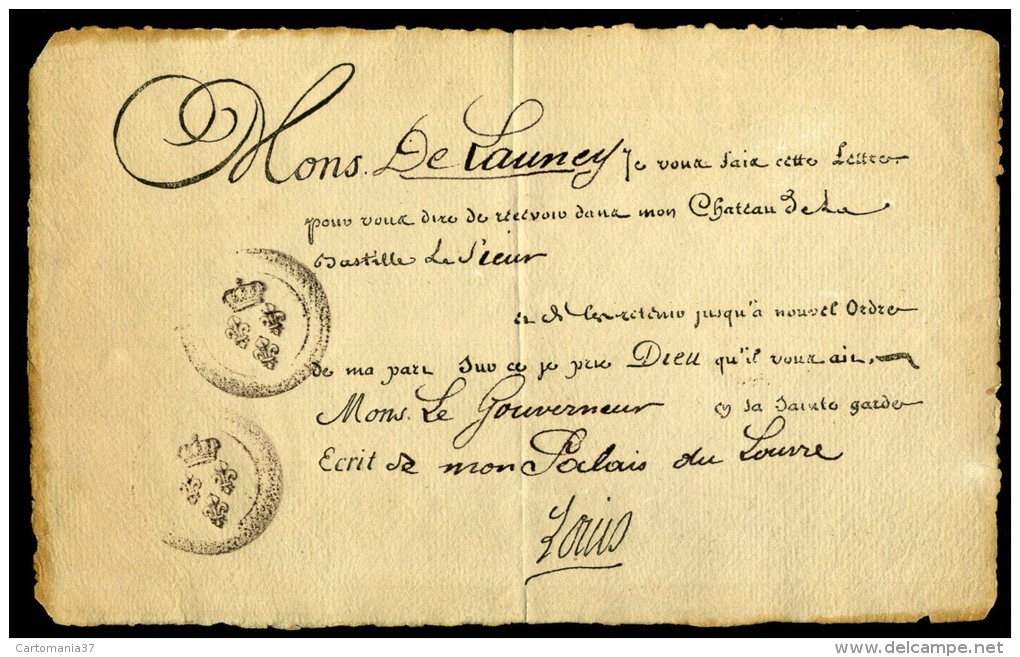 Mons. De Launey Je vous fais cette Lettre
pour vous dire de recevoir dans mon Chateau de La
Bastille Le Sieur
et de les retenir jusqu'à nouvel Ordre
de ma part Sur ce je prie Dieu qu'il vous ait,
Mons. Le Gouverneur en sa Sainte garde
Ecrit de mon Palais du Louvre
Louis
Cartomania37
delcampe.net